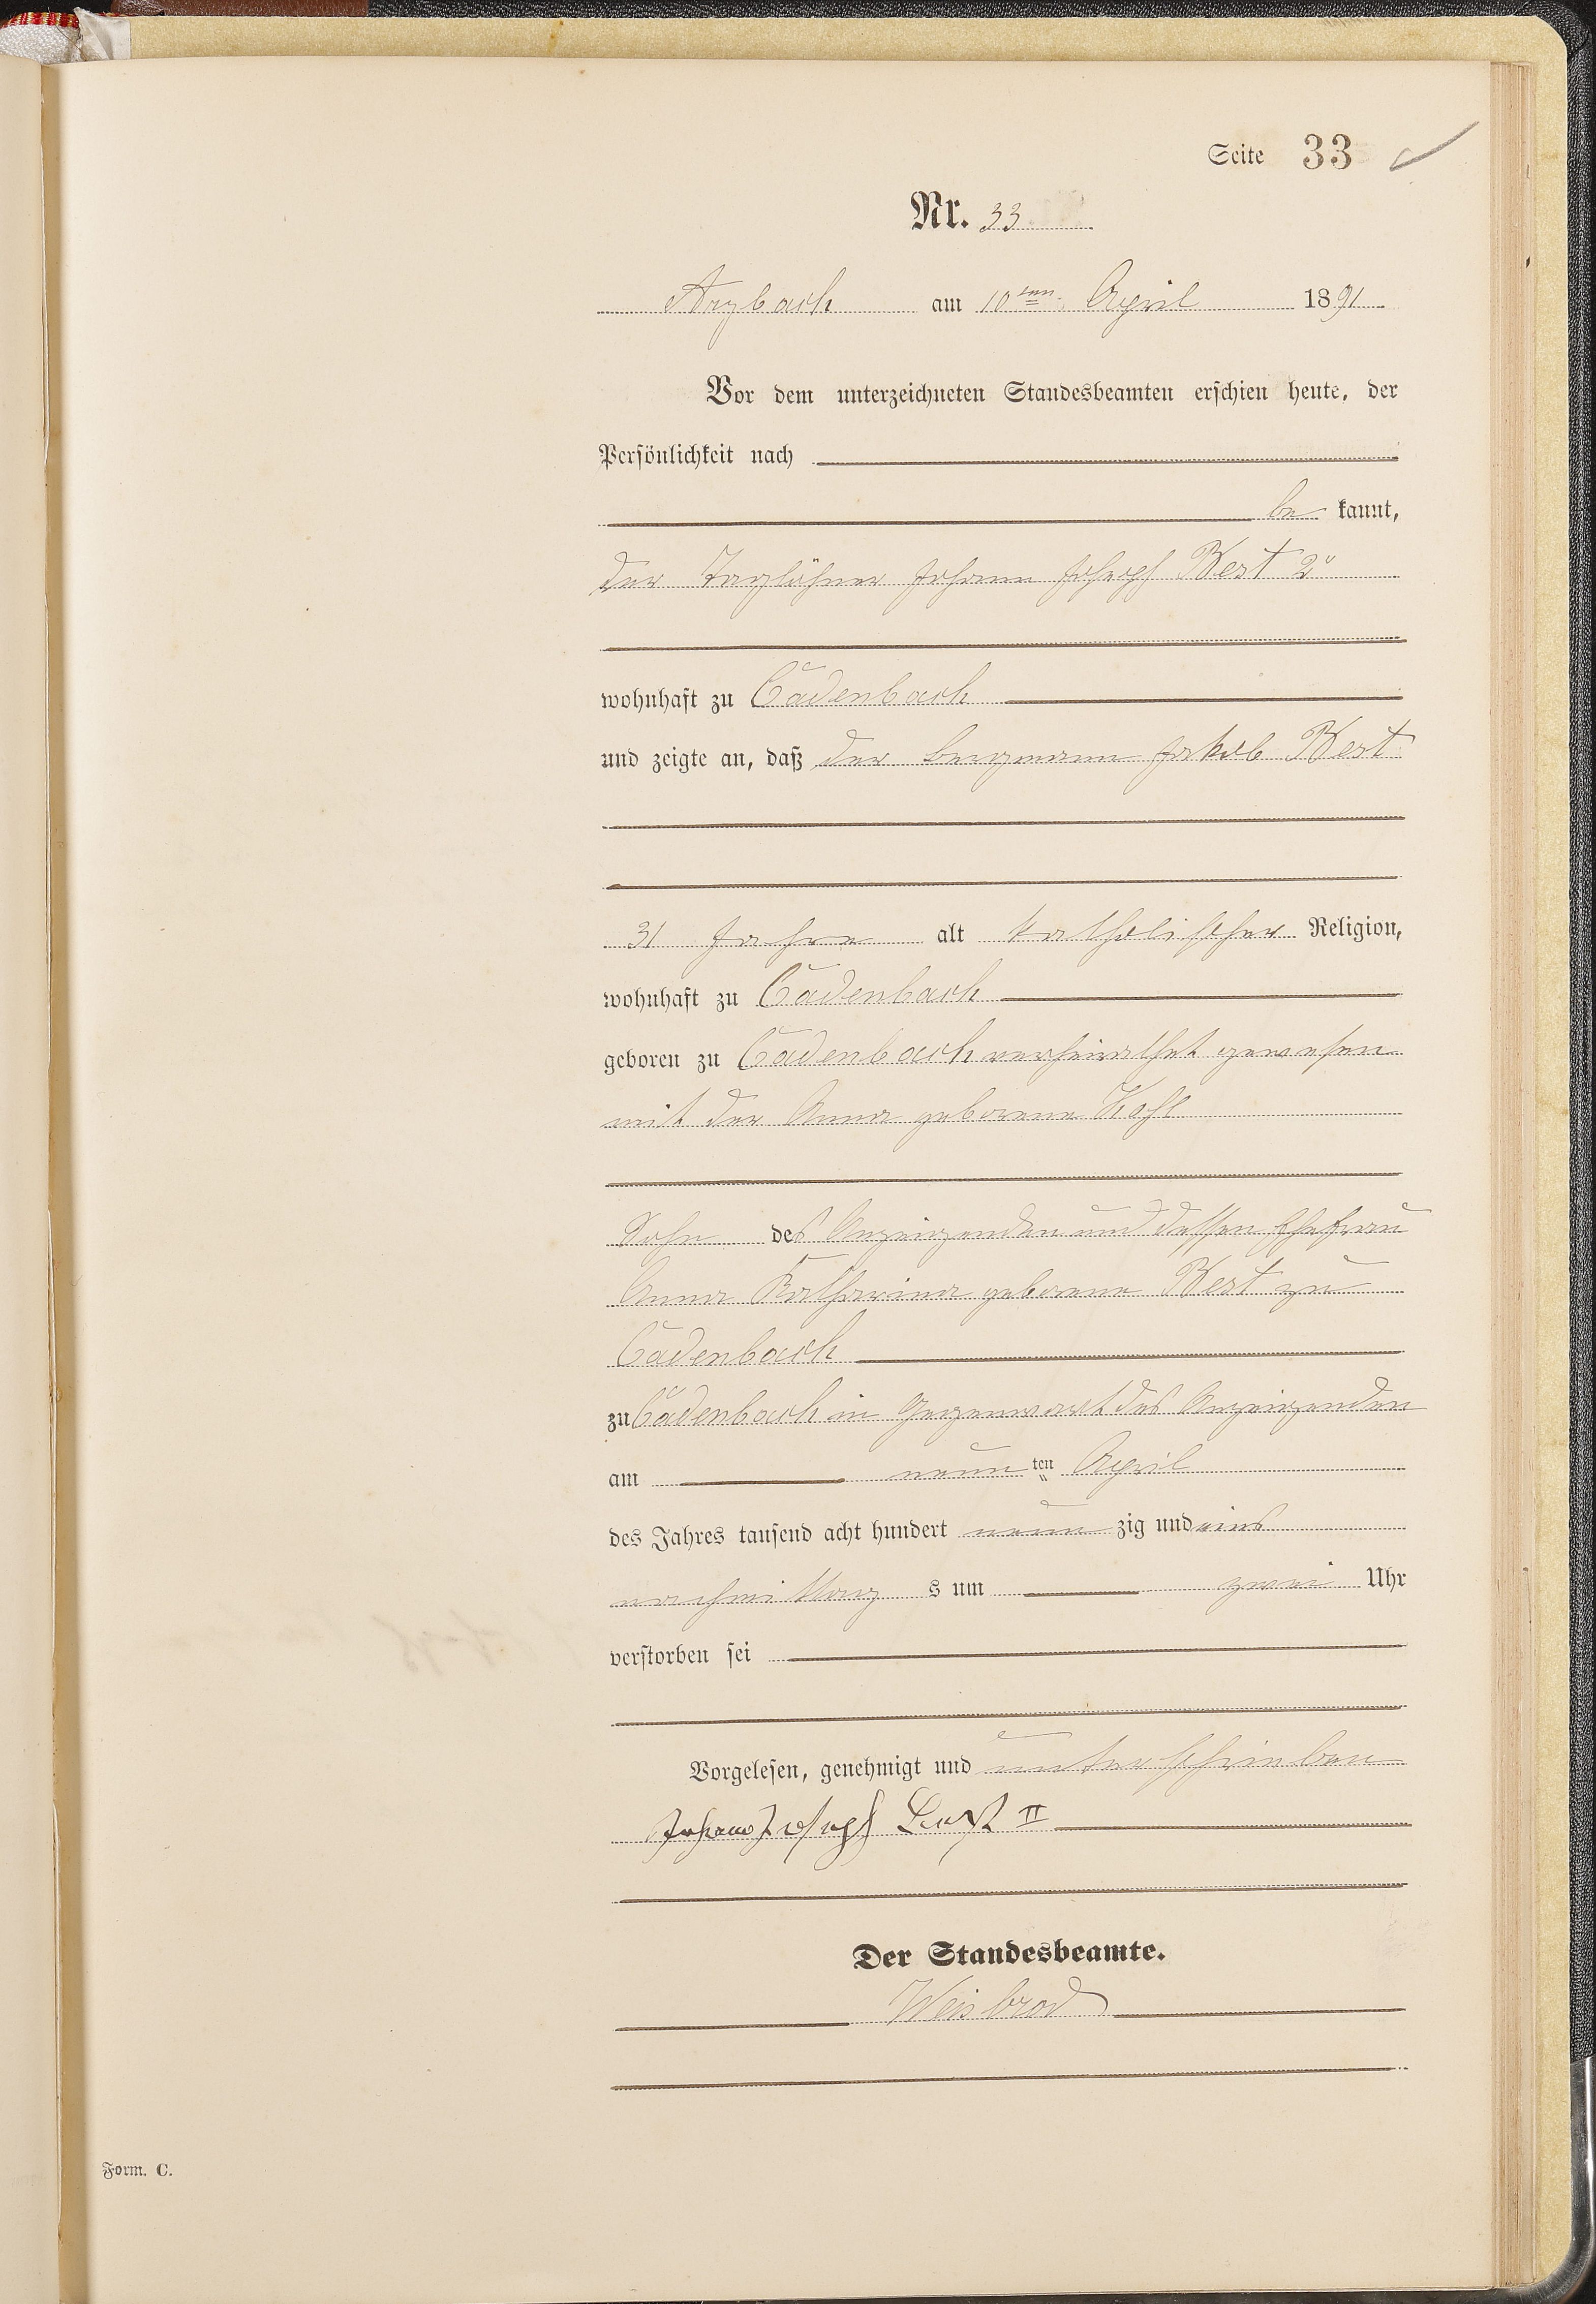 Seite 33
Nr. 33
Arzbach am 10ten April 1891
Vor dem unterzeichneten Standesbeamten erschien heute, der
Persönlichkeit nach
be kannt,
der Taglöhner Johann Joseph Best 2r
wohnhaft zu Cadenbach
und zeigte an, daß der Bergmann Jakob Best
31 Jahre alt katholischer Religion,
wohnhaft zu Cadenbach
geboren zu Cadenbach verheirathet gewesen
mit der Anna geborene
Sohn des Anzeigenden und dessen Ehefrau
Anna Katharina geborene Best zu
Cadenbach
zu Cadenbach in Gegenwart des Anzeigenden
am neun ten April
des Jahres tausend acht hundert neun zig und eins
nachmittag s um zwei Uhr
verstorben sei
Vorgelesen, genehmigt und unterschrieben
Johann Joseph Best II
Der Standesbeamte.
Weisbrod
Form. C.